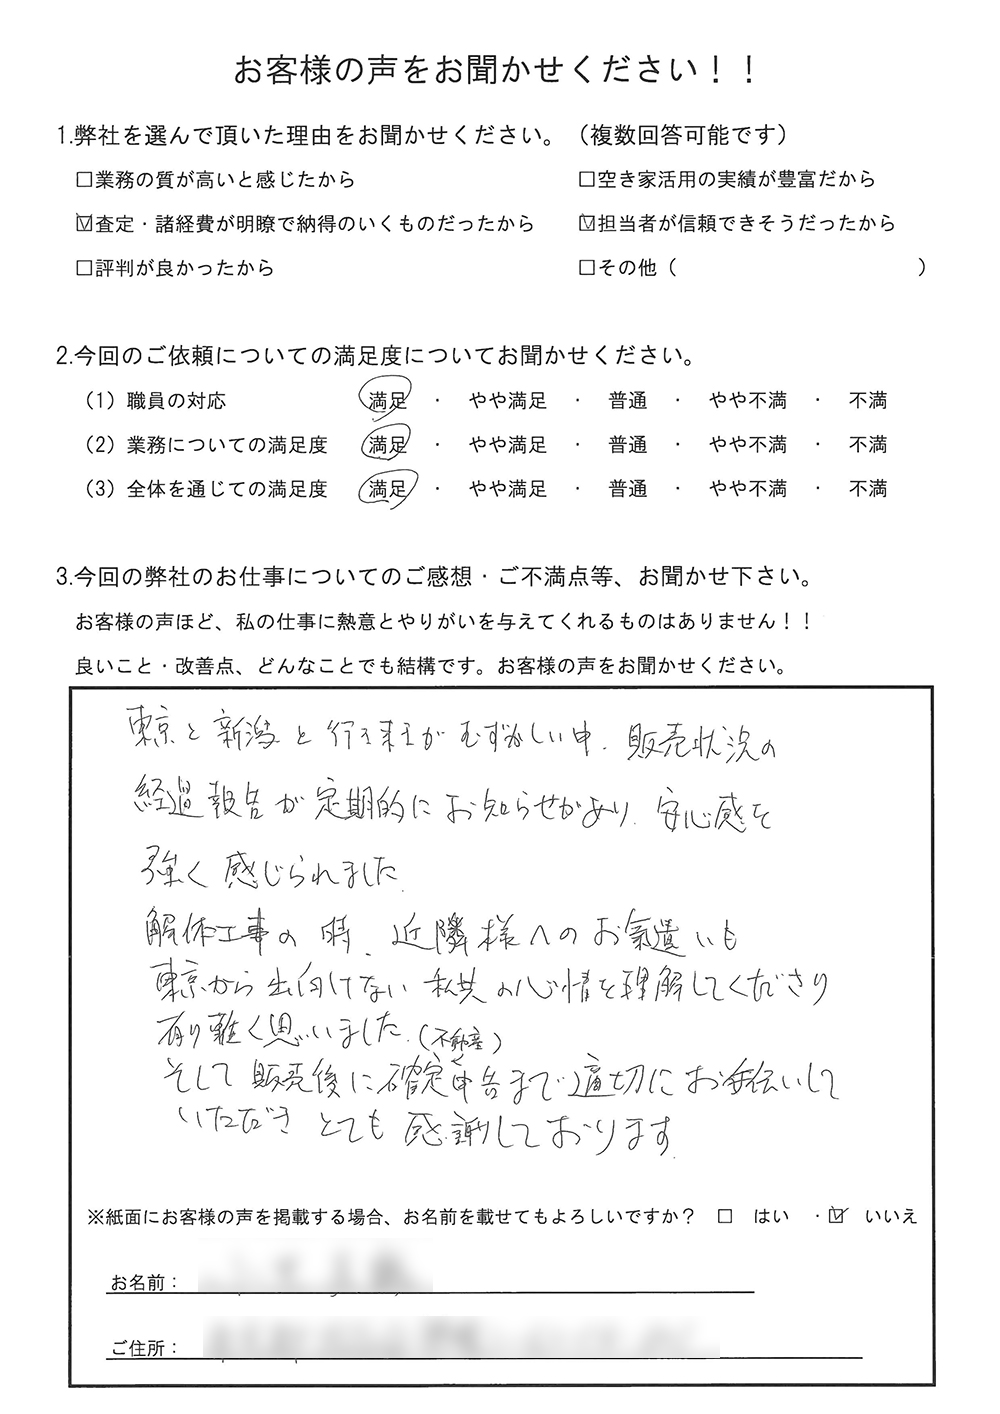 お客様の声をお聞かせください！！
1.弊社を選んで頂いた理由をお聞かせください。（複数回答可能です）
□業務の質が高いと感じたから □空き家活用の実績が豊富だから
☑査定・諸経費が明瞭で納得のいくものだったから ☑担当者が信頼できそうだったから
□評判が良かったから □その他（ ）
2.今回のご依頼についての満足度についてお聞かせください。
（1）職員の対応 満足 ・ やや満足 ・ 普通 ・ やや不満 ・ 不満
（2）業務についての満足度 満足 ・ やや満足 ・ 普通 ・ やや不満 ・ 不満
（3）全体を通じての満足度 満足 ・ やや満足 ・ 普通 ・ やや不満 ・ 不満
3.今回の弊社のお仕事についてのご感想・ご不満点等、お聞かせ下さい。
お客様の声ほど、私の仕事に熱意とやりがいを与えてくれるものはありません！！
良いこと・改善点、どんなことでも結構です。お客様の声をお聞かせください。
東京と新潟と行き来がむずかしい中、販売状況の
経過報告が定期的にお知らせがあり、安心感を
強く感じられました。
解体工事の時、近隣様へのお気遣いも
東京から出向けない私共の心情を理解してくださり
有り難く思いました。（不動産）
そして販売後に確定申告まで適切にお手伝いして
いただき とても感謝しております。
※紙面にお客様の声を掲載する場合、お名前を載せてもよろしいですか？ □ はい ・☑ いいえ
お名前：
ご住所：